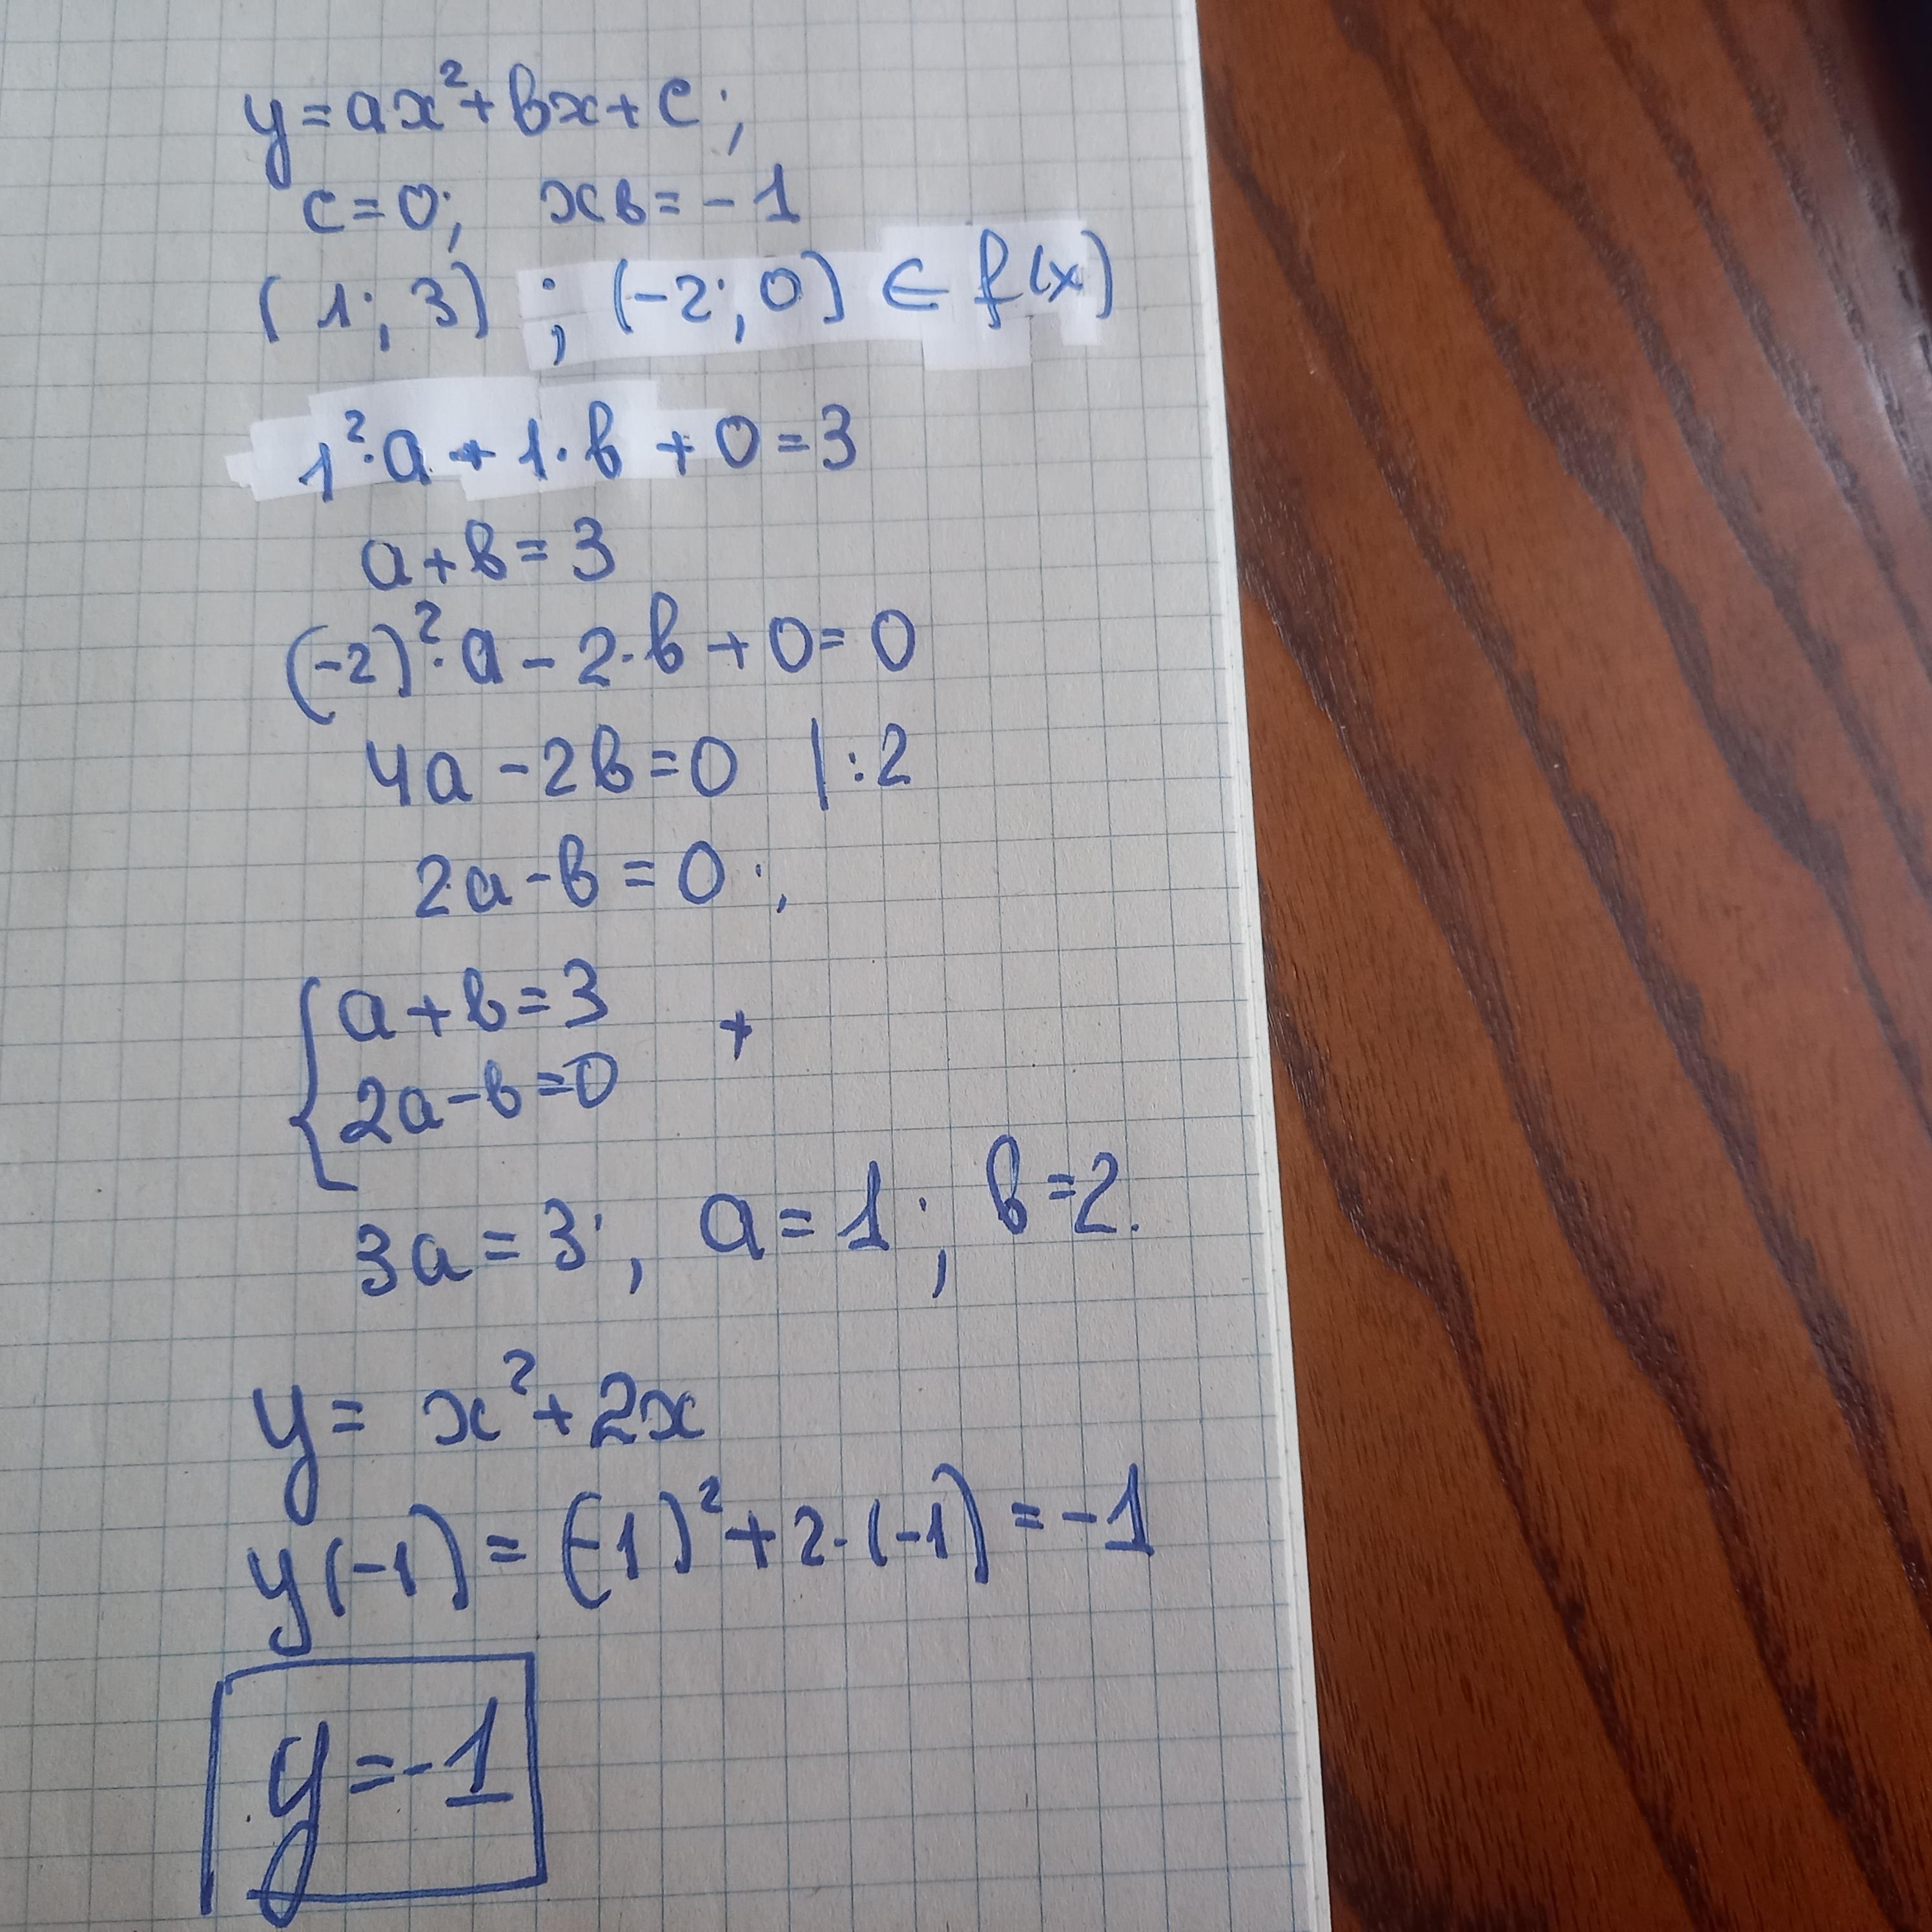 y = ax² + bx + c;
c = 0; xв = -1
(1; 3) ; (-2; 0) ∈ f(x)
1²·a + 1·b + 0 = 3
a + b = 3
(-2)²·a - 2·b + 0 = 0
4a - 2b = 0 |:2
2a - b = 0;
{ a + b = 3 +
2a - b = 0
3a = 3; a = 1; b = 2.
y = x² + 2x
y(-1) = (-1)² + 2·(-1) = -1
y = -1